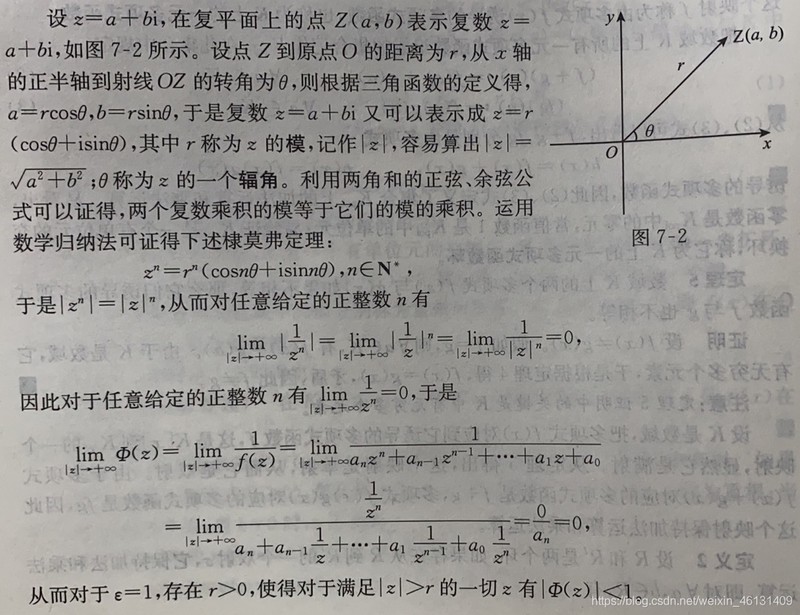 设 z=a+bi,在复平面上的点 Z(a,b)表示复数 z=
a+bi,如图 7-2 所示。设点 Z 到原点 O 的距离为 r,从 x 轴
的正半轴到射线 OZ 的转角为 θ,则根据三角函数的定义得,
a=rcosθ,b=rsinθ,于是复数 z=a+bi 又可以表示成 z=r
(cosθ+isinθ),其中 r 称为 z 的模,记作|z|,容易算出|z|=
√(a²+b²);θ 称为 z 的一个辐角。利用两角和的正弦、余弦公
式可以证得,两个复数乘积的模等于它们的模的乘积。运用
数学归纳法可证得下述棣莫弗定理:
y
Z(a, b)
r
θ
O
x
图 7-2
zⁿ=rⁿ(cosnθ+isinnθ),n∈N*,
于是|zⁿ|=|z|ⁿ,从而对任意给定的正整数 n 有
lim_{|z|→+∞}|1/zⁿ|=lim_{|z|→+∞}|1/z|ⁿ=lim_{|z|→+∞}1/|z|ⁿ=0,
因此对于任意给定的正整数 n 有 lim_{|z|→+∞}1/zⁿ=0,于是
lim_{|z|→+∞}Φ(z)=lim_{|z|→+∞}1/f(z)=lim_{|z|→+∞}1/(aₙzⁿ+aₙ₋₁zⁿ⁻¹+⋯+a₁z+a₀)
=lim_{|z|→+∞}(1/zⁿ)/(aₙ+aₙ₋₁ 1/z+⋯+a₁ 1/zⁿ⁻¹+a₀ 1/zⁿ)=0/aₙ=0,
从而对于 ε=1,存在 r>0,使得对于满足|z|>r 的一切 z 有|Φ(z)|<1。
https://blog.csdn.net/weixin_46131409